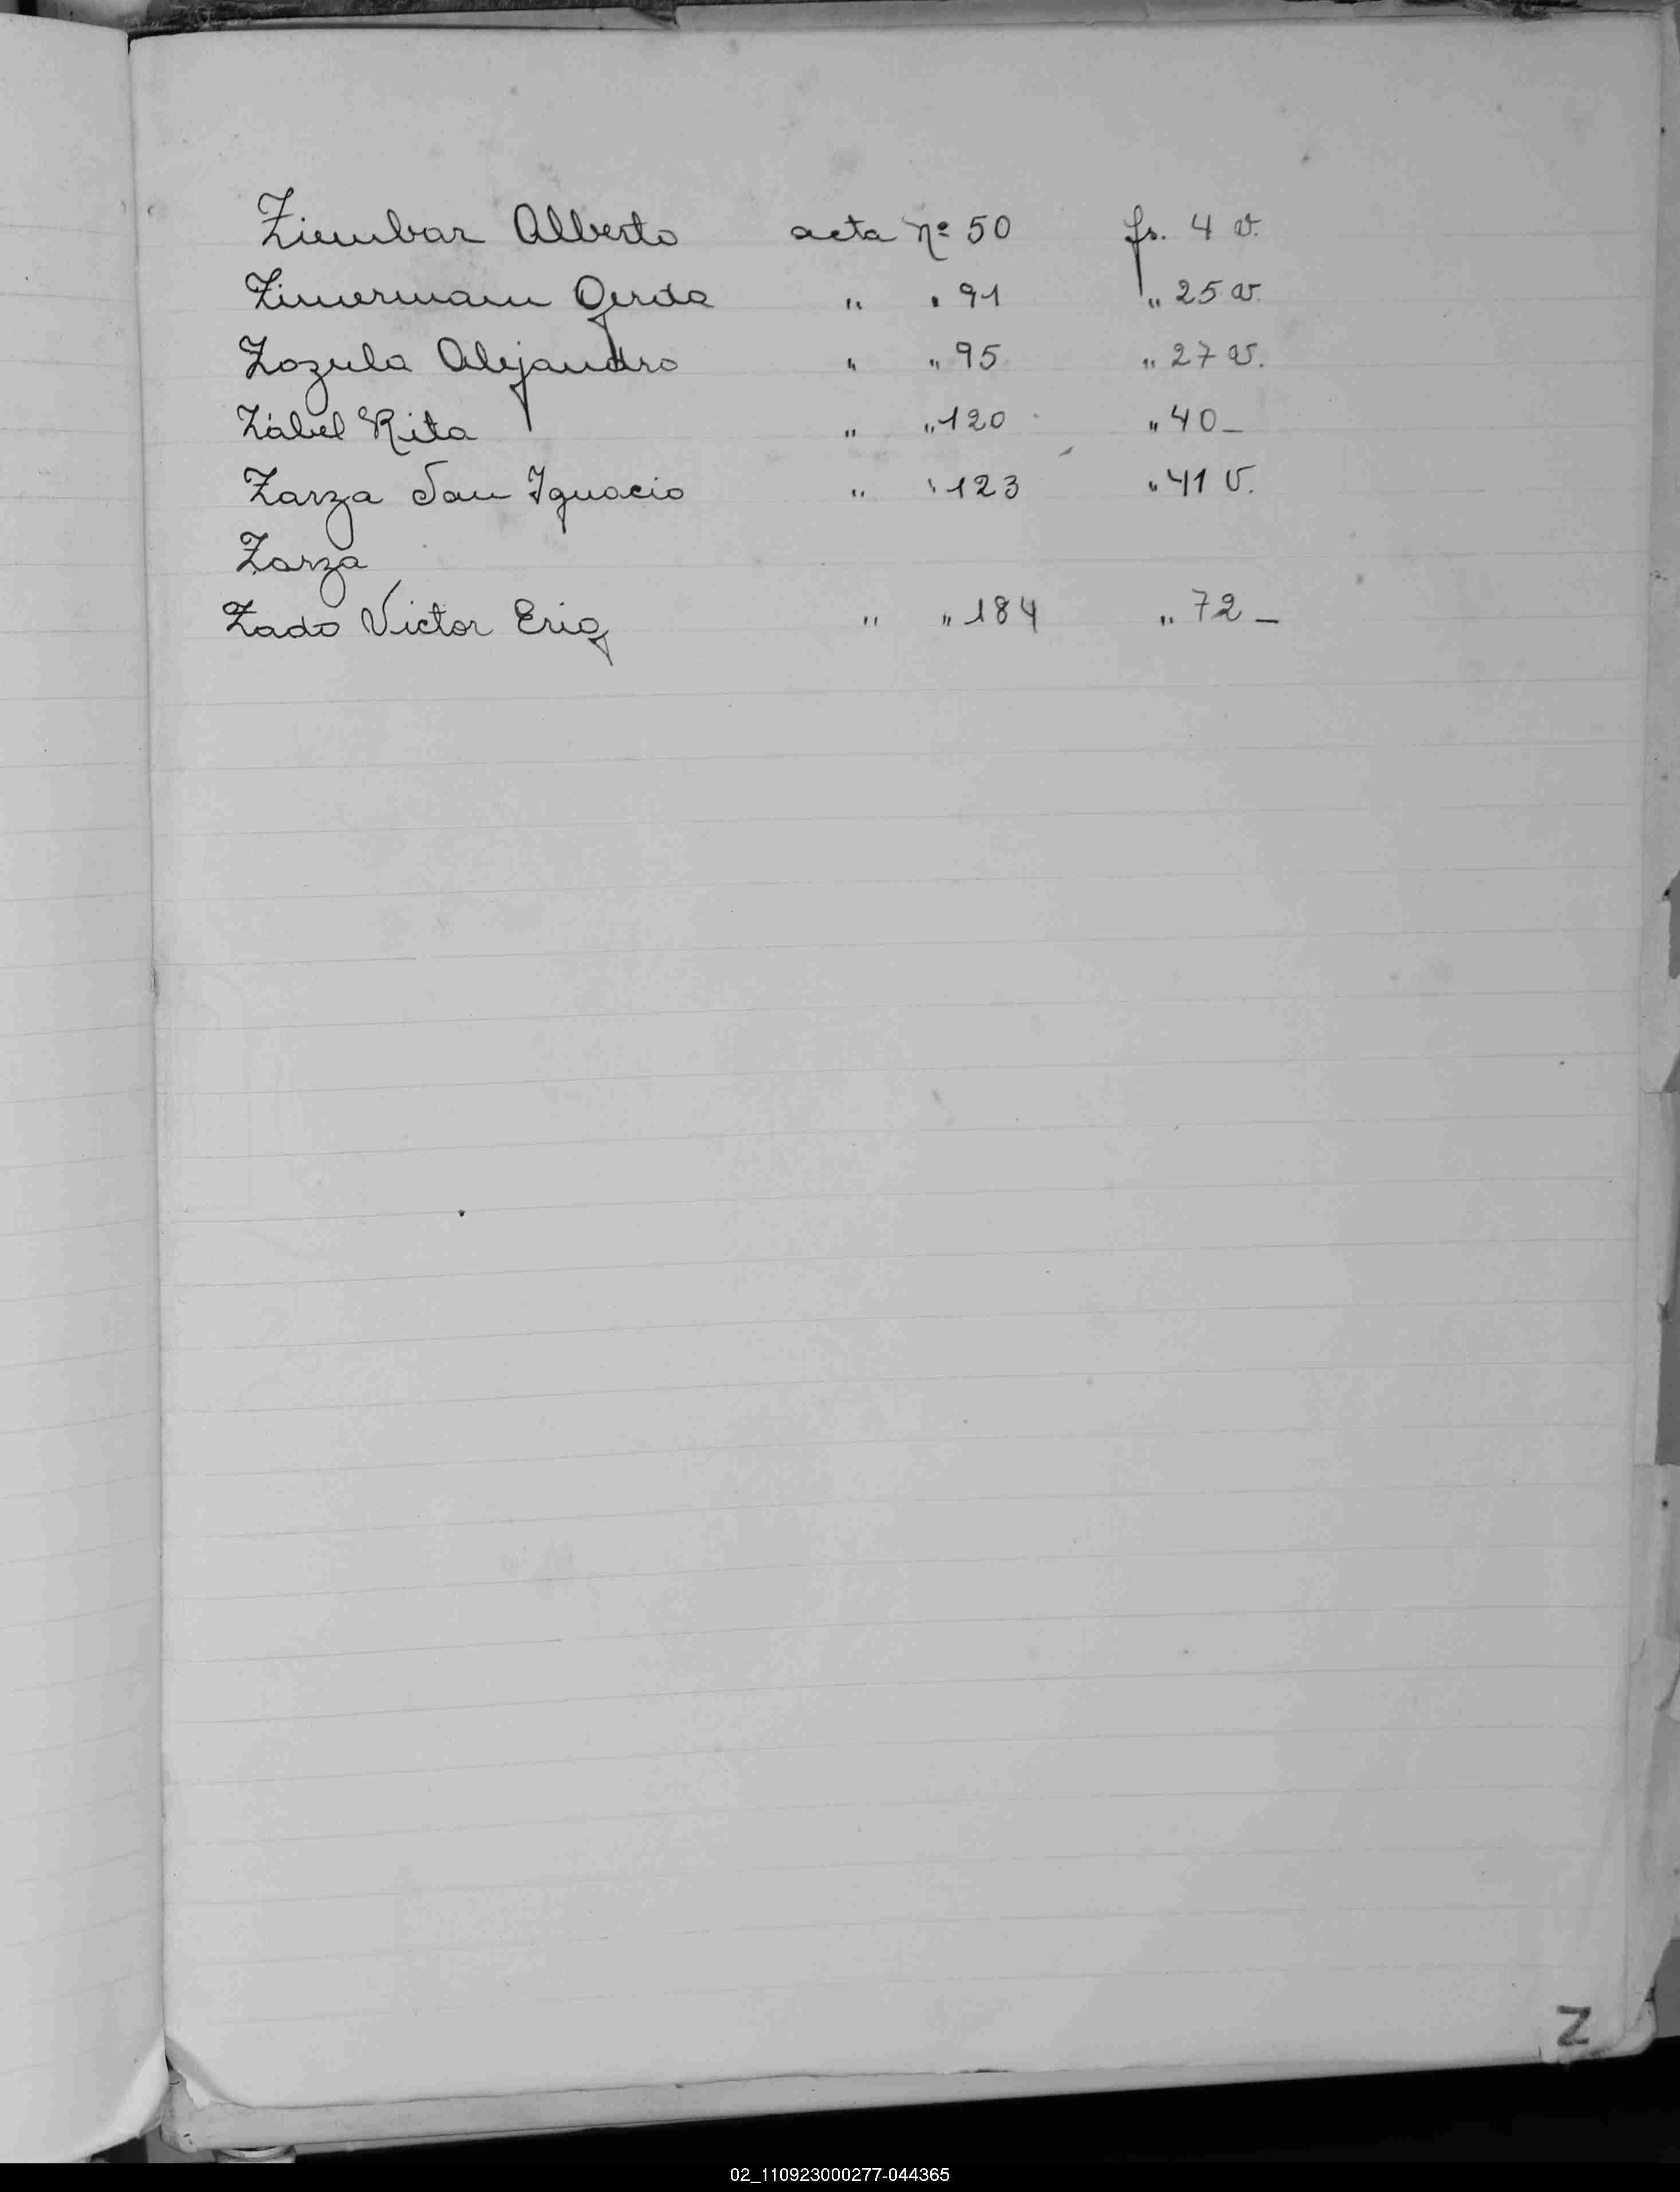 Ziembar Alberto acta nº 50 fs. 4 v.
Zimermann Gerda " " 91 " 25 v.
Zozula Alejandro " " 95 " 27 v.
Zábel Rita " " 120 " 40 _
Zarza San Ignacio " " 123 " 41 v.
Zarza
Zado Victor Erig " " 184 " 72 _
Z
02_110923000277-044365